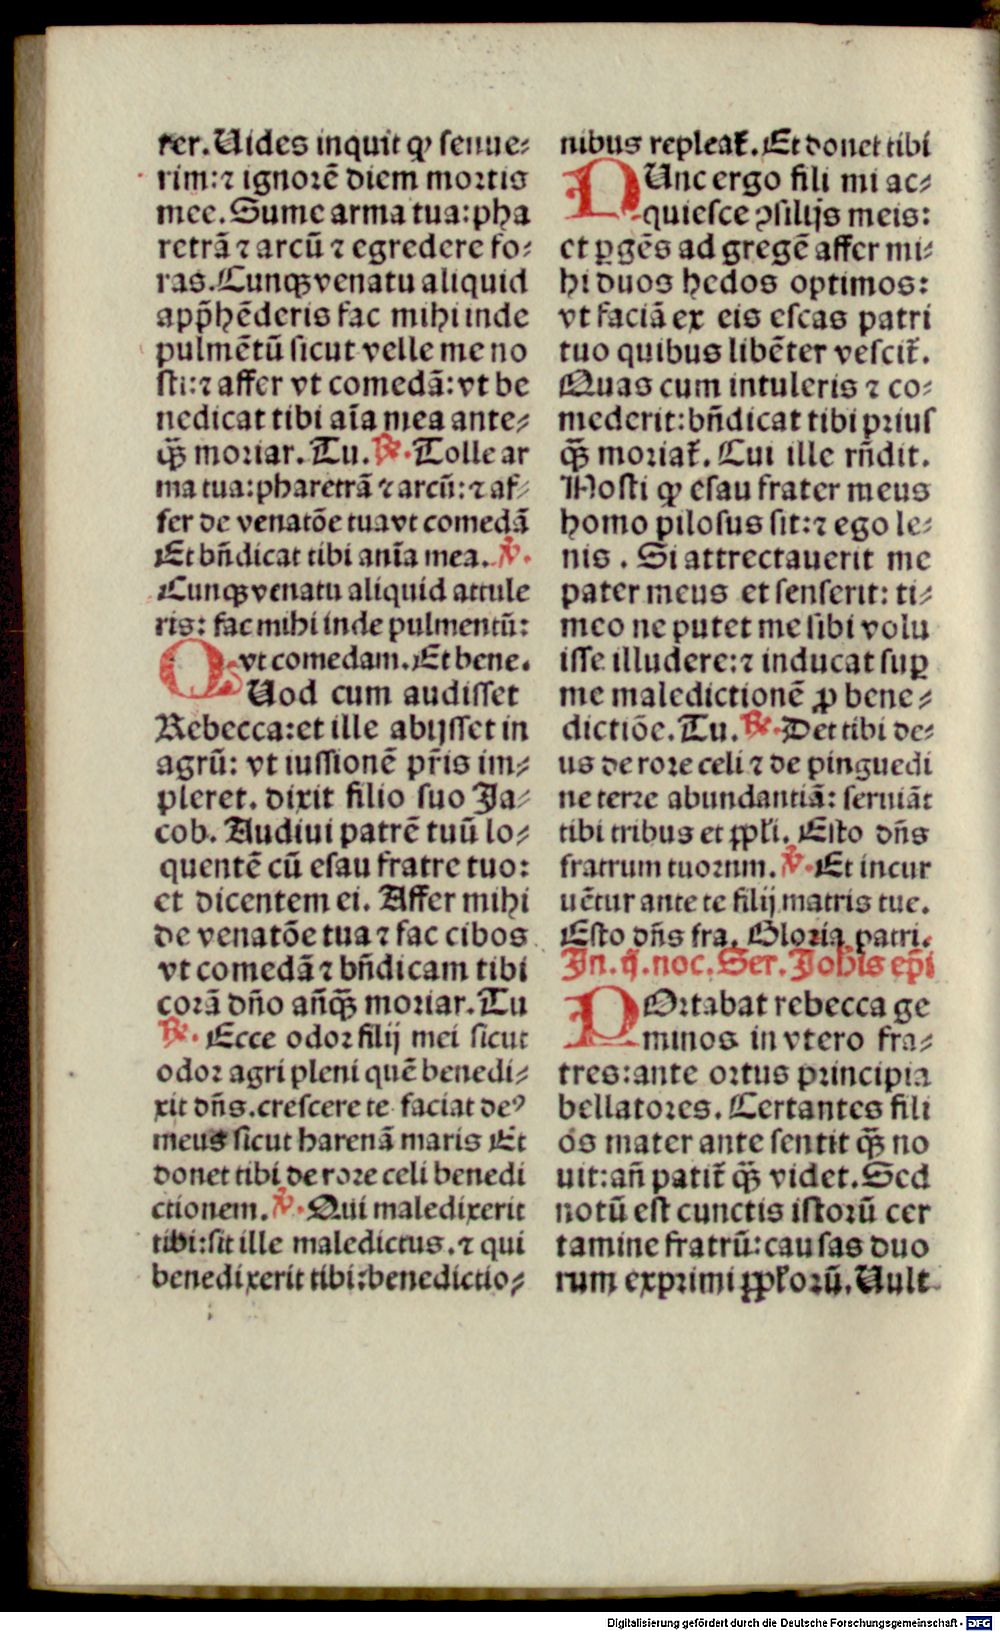 ter. Uides inquit ꝙ senue⸗
rim: ⁊ ignorē diem mortis
mee. Sume arma tua: pha
retrā ⁊ arcū ⁊ egredere fo⸗
ras. Cunqꝫ venatu aliquid
app̄hēderis fac mihi inde
pulmētū sicut velle me no
sti: ⁊ affer vt comedā: vt be
nedicat tibi aīa mea ante⸗
qꝫ̄ moriar. Tu. ℟. Tolle ar
ma tua: pharetrā ⁊ arcū: ⁊ af⸗
fer de venatōe tua vt comedā
Et bn̄dicat tibi anīa mea. ℣.
Cunqꝫ venatu aliquid attule
ris: fac mihi inde pulmentū:
vt comedam. Et bene.
QUod cum audisset
Rebecca: et ille abijsset in
agrū: vt iussionē pr̄is im⸗
pleret. dixit filio suo Ja⸗
cob. Audiui patrē tuū lo⸗
quentē cū esau fratre tuo:
et dicentem ei. Affer mihi
de venatōe tua ⁊ fac cibos
vt comedā ⁊ bn̄dicam tibi
corā dn̄o an̄qꝫ̄ moriar. Tu
℟. Ecce odor filij mei sicut
odor agri pleni quē benedi⸗
xit dn̄s. crescere te faciat deꝰ
meus sicut harenā maris Et
donet tibi de rore celi benedi
ctionem. ℣. Qui maledixerit
tibi: sit ille maledictus. ⁊ qui
benedixerit tibi: benedictio⸗
nibus repleat᷑. Et donet tibi
NUnc ergo fili mi ac⸗
quiesce ꝯsilijs meis:
et ꝑgēs ad gregē affer mi⸗
hi duos hedos optimos:
vt faciā ex eis escas patri
tuo quibus libēter vescit᷑.
Quas cum intuleris ⁊ co⸗
mederit: bn̄dicat tibi prius
qꝫ̄ moriat᷑. Cui ille rn̄dit.
Nosti ꝙ esau frater meus
homo pilosus sit: ⁊ ego le⸗
nis. Si attrectauerit me
pater meus et senserit: ti⸗
meo ne putet me sibi volu
isse illudere: ⁊ inducat suꝑ
me maledictionē ꝓ bene⸗
dictiōe. Tu. ℟. Det tibi de⸗
us de rore celi ⁊ de pinguedi
ne terre abundantiā: seruiāt
tibi tribus et ꝓpl̄i. Esto dn̄s
fratrum tuorum. ℣. Et incur
uētur ante te filij matris tue.
Esto dn̄s fra. Gloria patri.
In. ij. noc. Ser. Joh̄is ep̄i
POrtabat rebecca ge
minos in vtero fra⸗
tres: ante ortus principia
bellatores. Certantes fili
os mater ante sentit qꝫ̄ no
uit: an̄ patit᷑ qꝫ̄ videt. Sed
notū est cunctis istorū cer
tamine fratrū: causas duo
rum exprimi ꝓpl̄orū. Uult
Digitalisierung gefördert durch die Deutsche Forschungsgemeinschaft - DFG